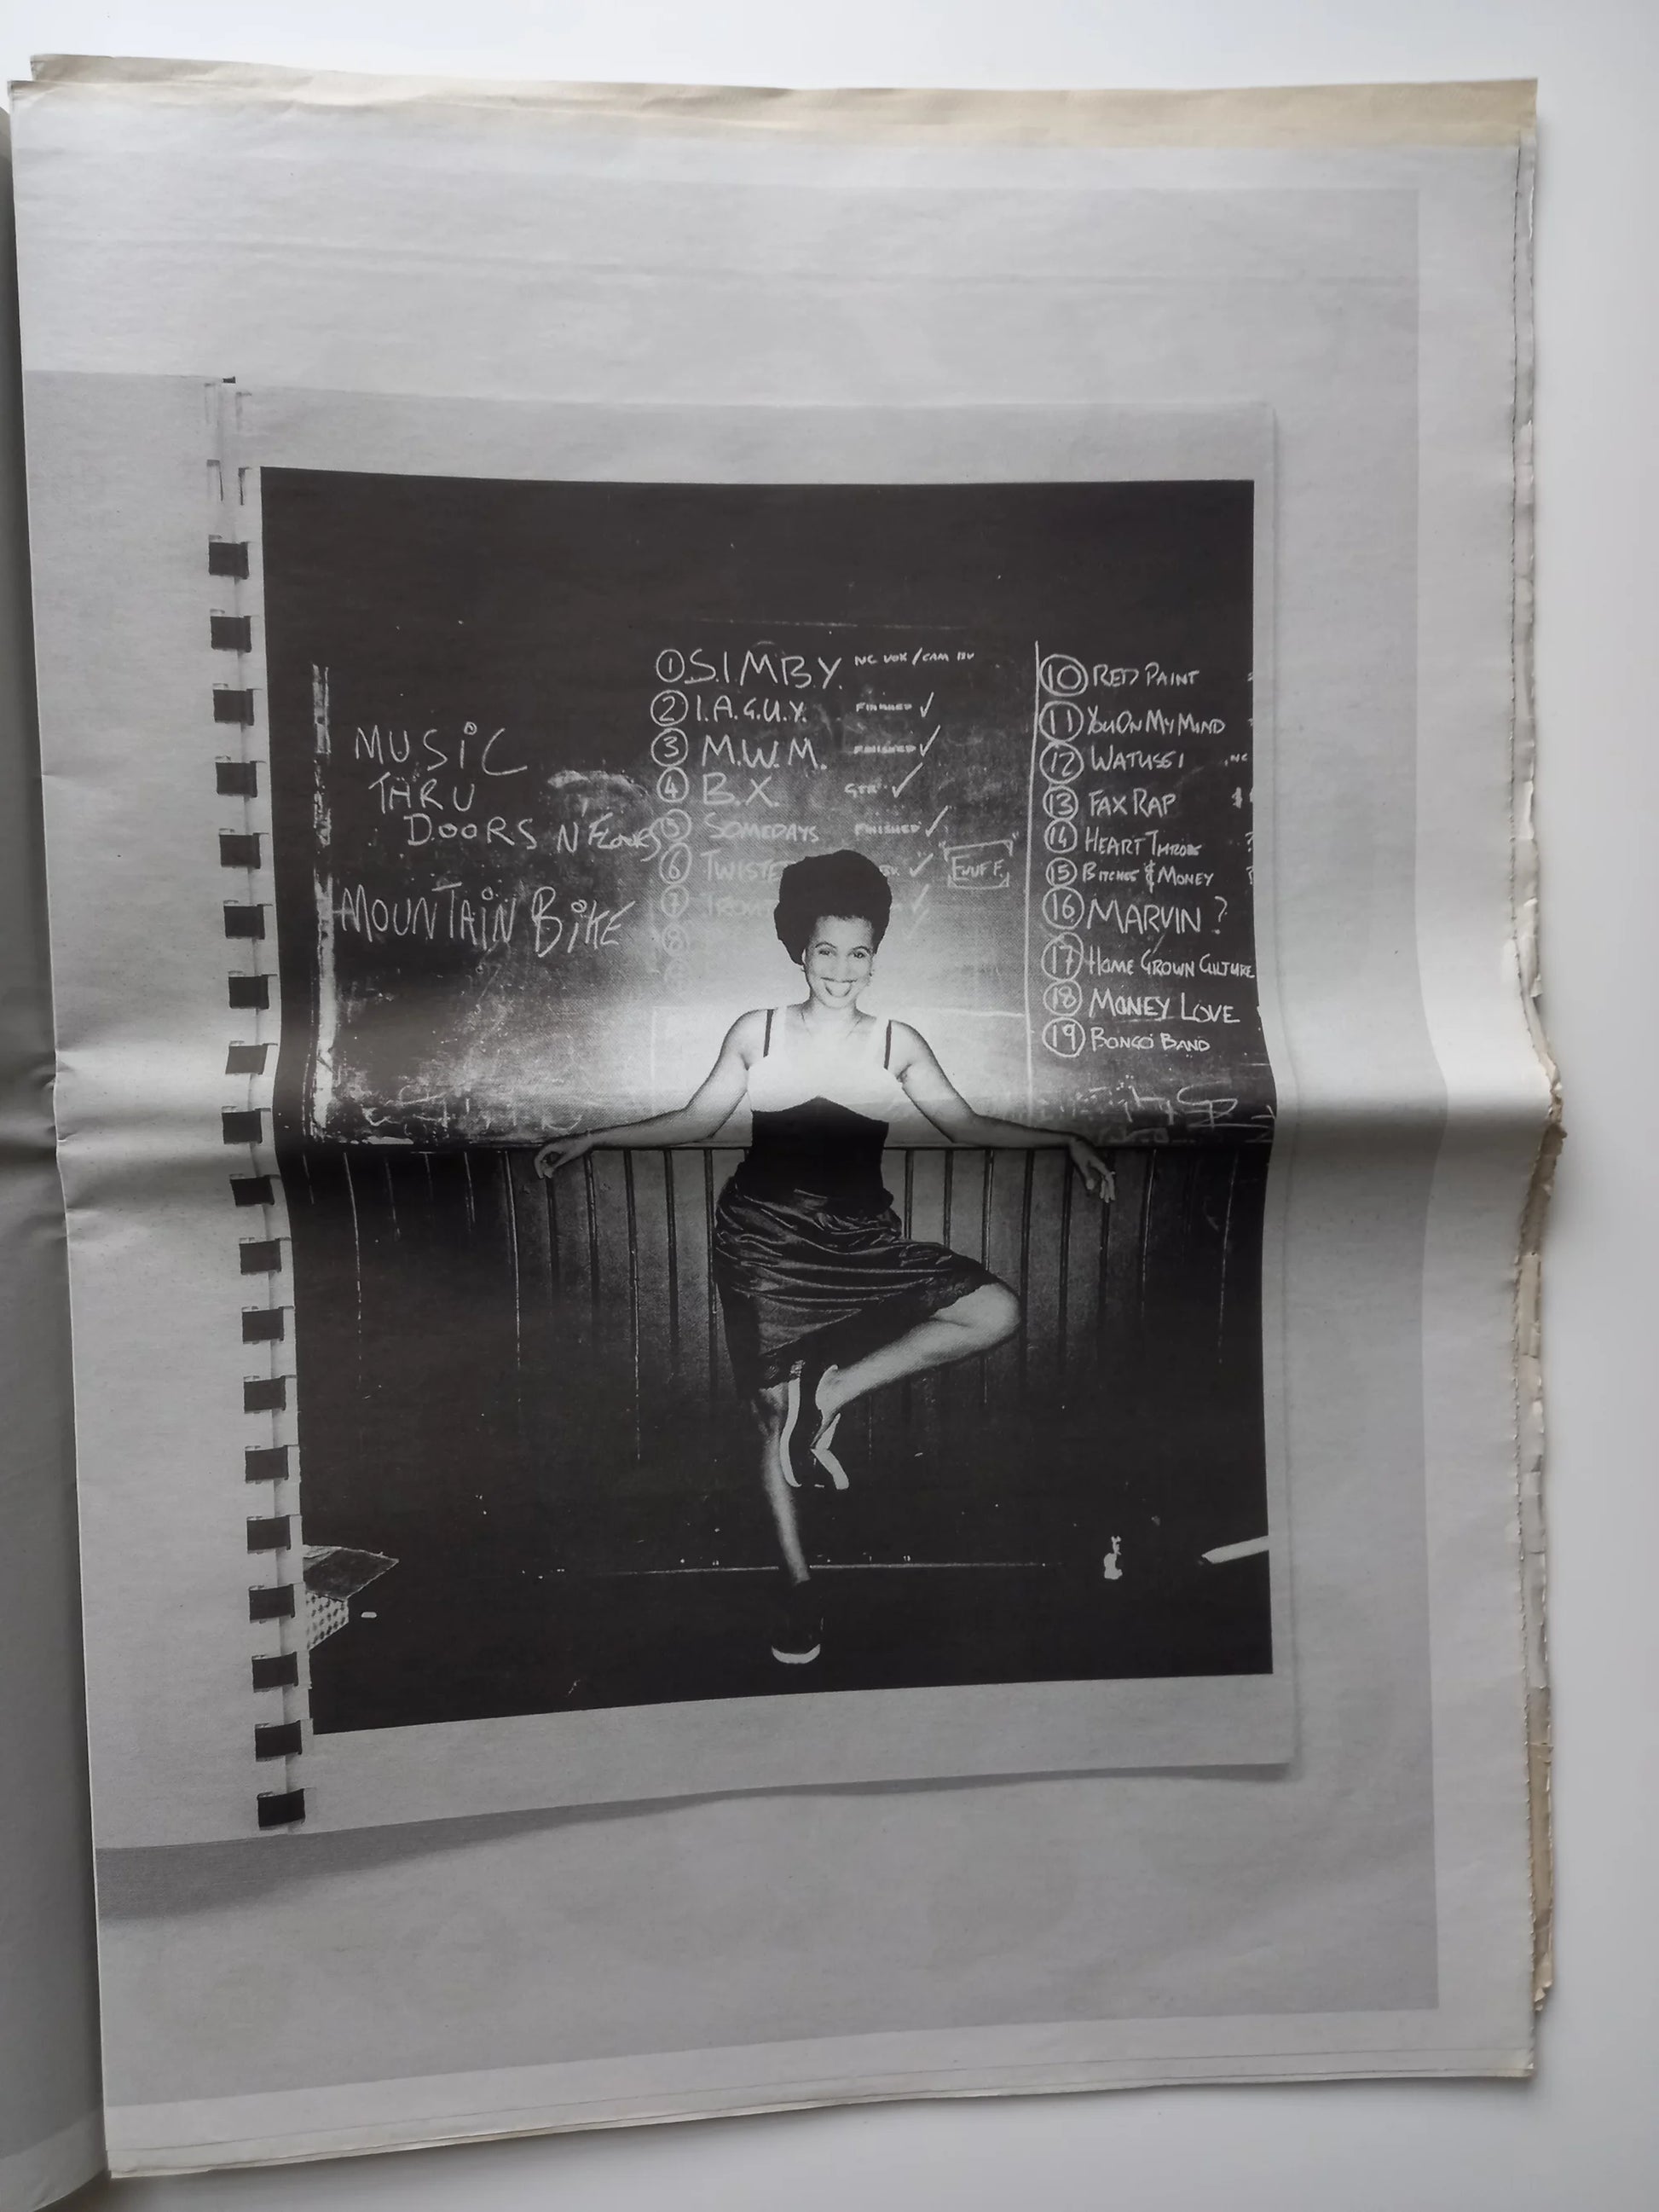 MUSIC
THRU
DOORS N FLOORS
MOUNTAIN BIKE
① S.I.M.B.Y. NC VOX / CAM BV
② I.A.G.U.Y. FINISHED ✓
③ M.W.M. FINISHED ✓
④ B.X. GTR ✓
⑤ SOMEDAYS FINISHED ✓
⑥ TWISTE BV. ✓
⑦ ✓
⑧
⑩ RED PAINT
⑪ YOU ON MY MIND
⑫ WATUSSI NC
⑬ FAX RAP
⑭ HEART THROB ?
⑮ BITCHES & MONEY
⑯ MARVIN ?
⑰ HOME GROWN CULTURE
⑱ MONEY LOVE
⑲ BONGO BAND